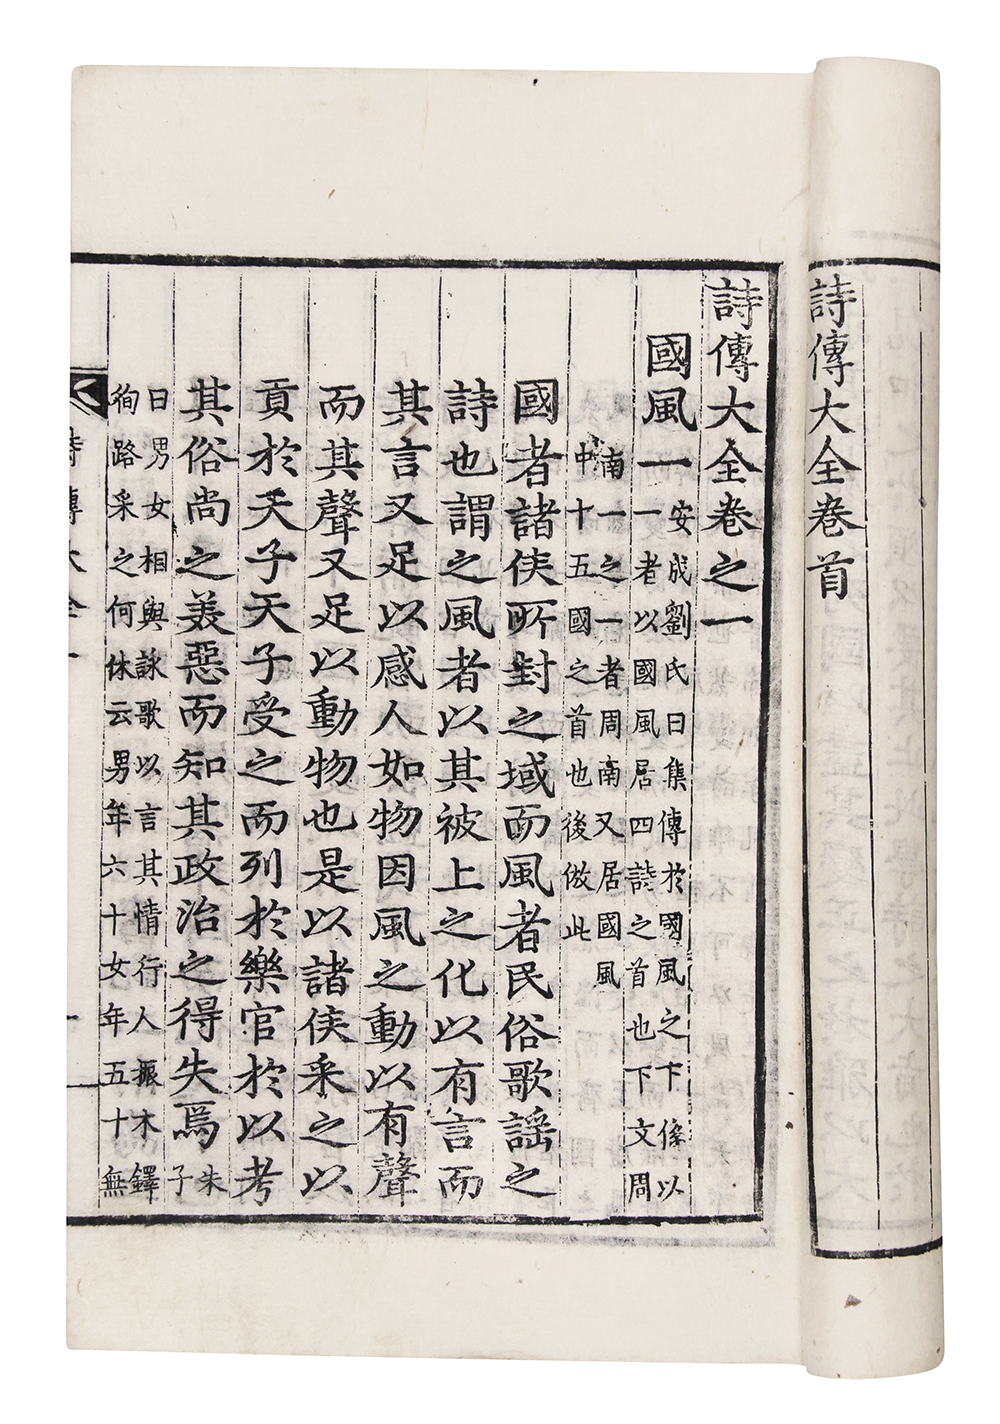 詩傳大全卷首
詩傳大全卷之一
國風一
安成劉氏曰集傳於國風之下係以
一者以國風居四詩之首也下文周
南一之一者周南又居國風
中十五國之首也後倣此
國者諸侯所封之域而風者民俗歌謡之
詩也謂之風者以其被上之化以有言而
其言又足以感人如物因風之動以有聲
而其聲又足以動物也是以諸侯采之以
貢於天子天子受之而列於樂官於以考
其俗尚之美惡而知其政治之得失焉
朱
子
曰男女相與詠歌以言其情行人振木鐸
徇路采之何休云男年六十女年五十無
詩傳大全一